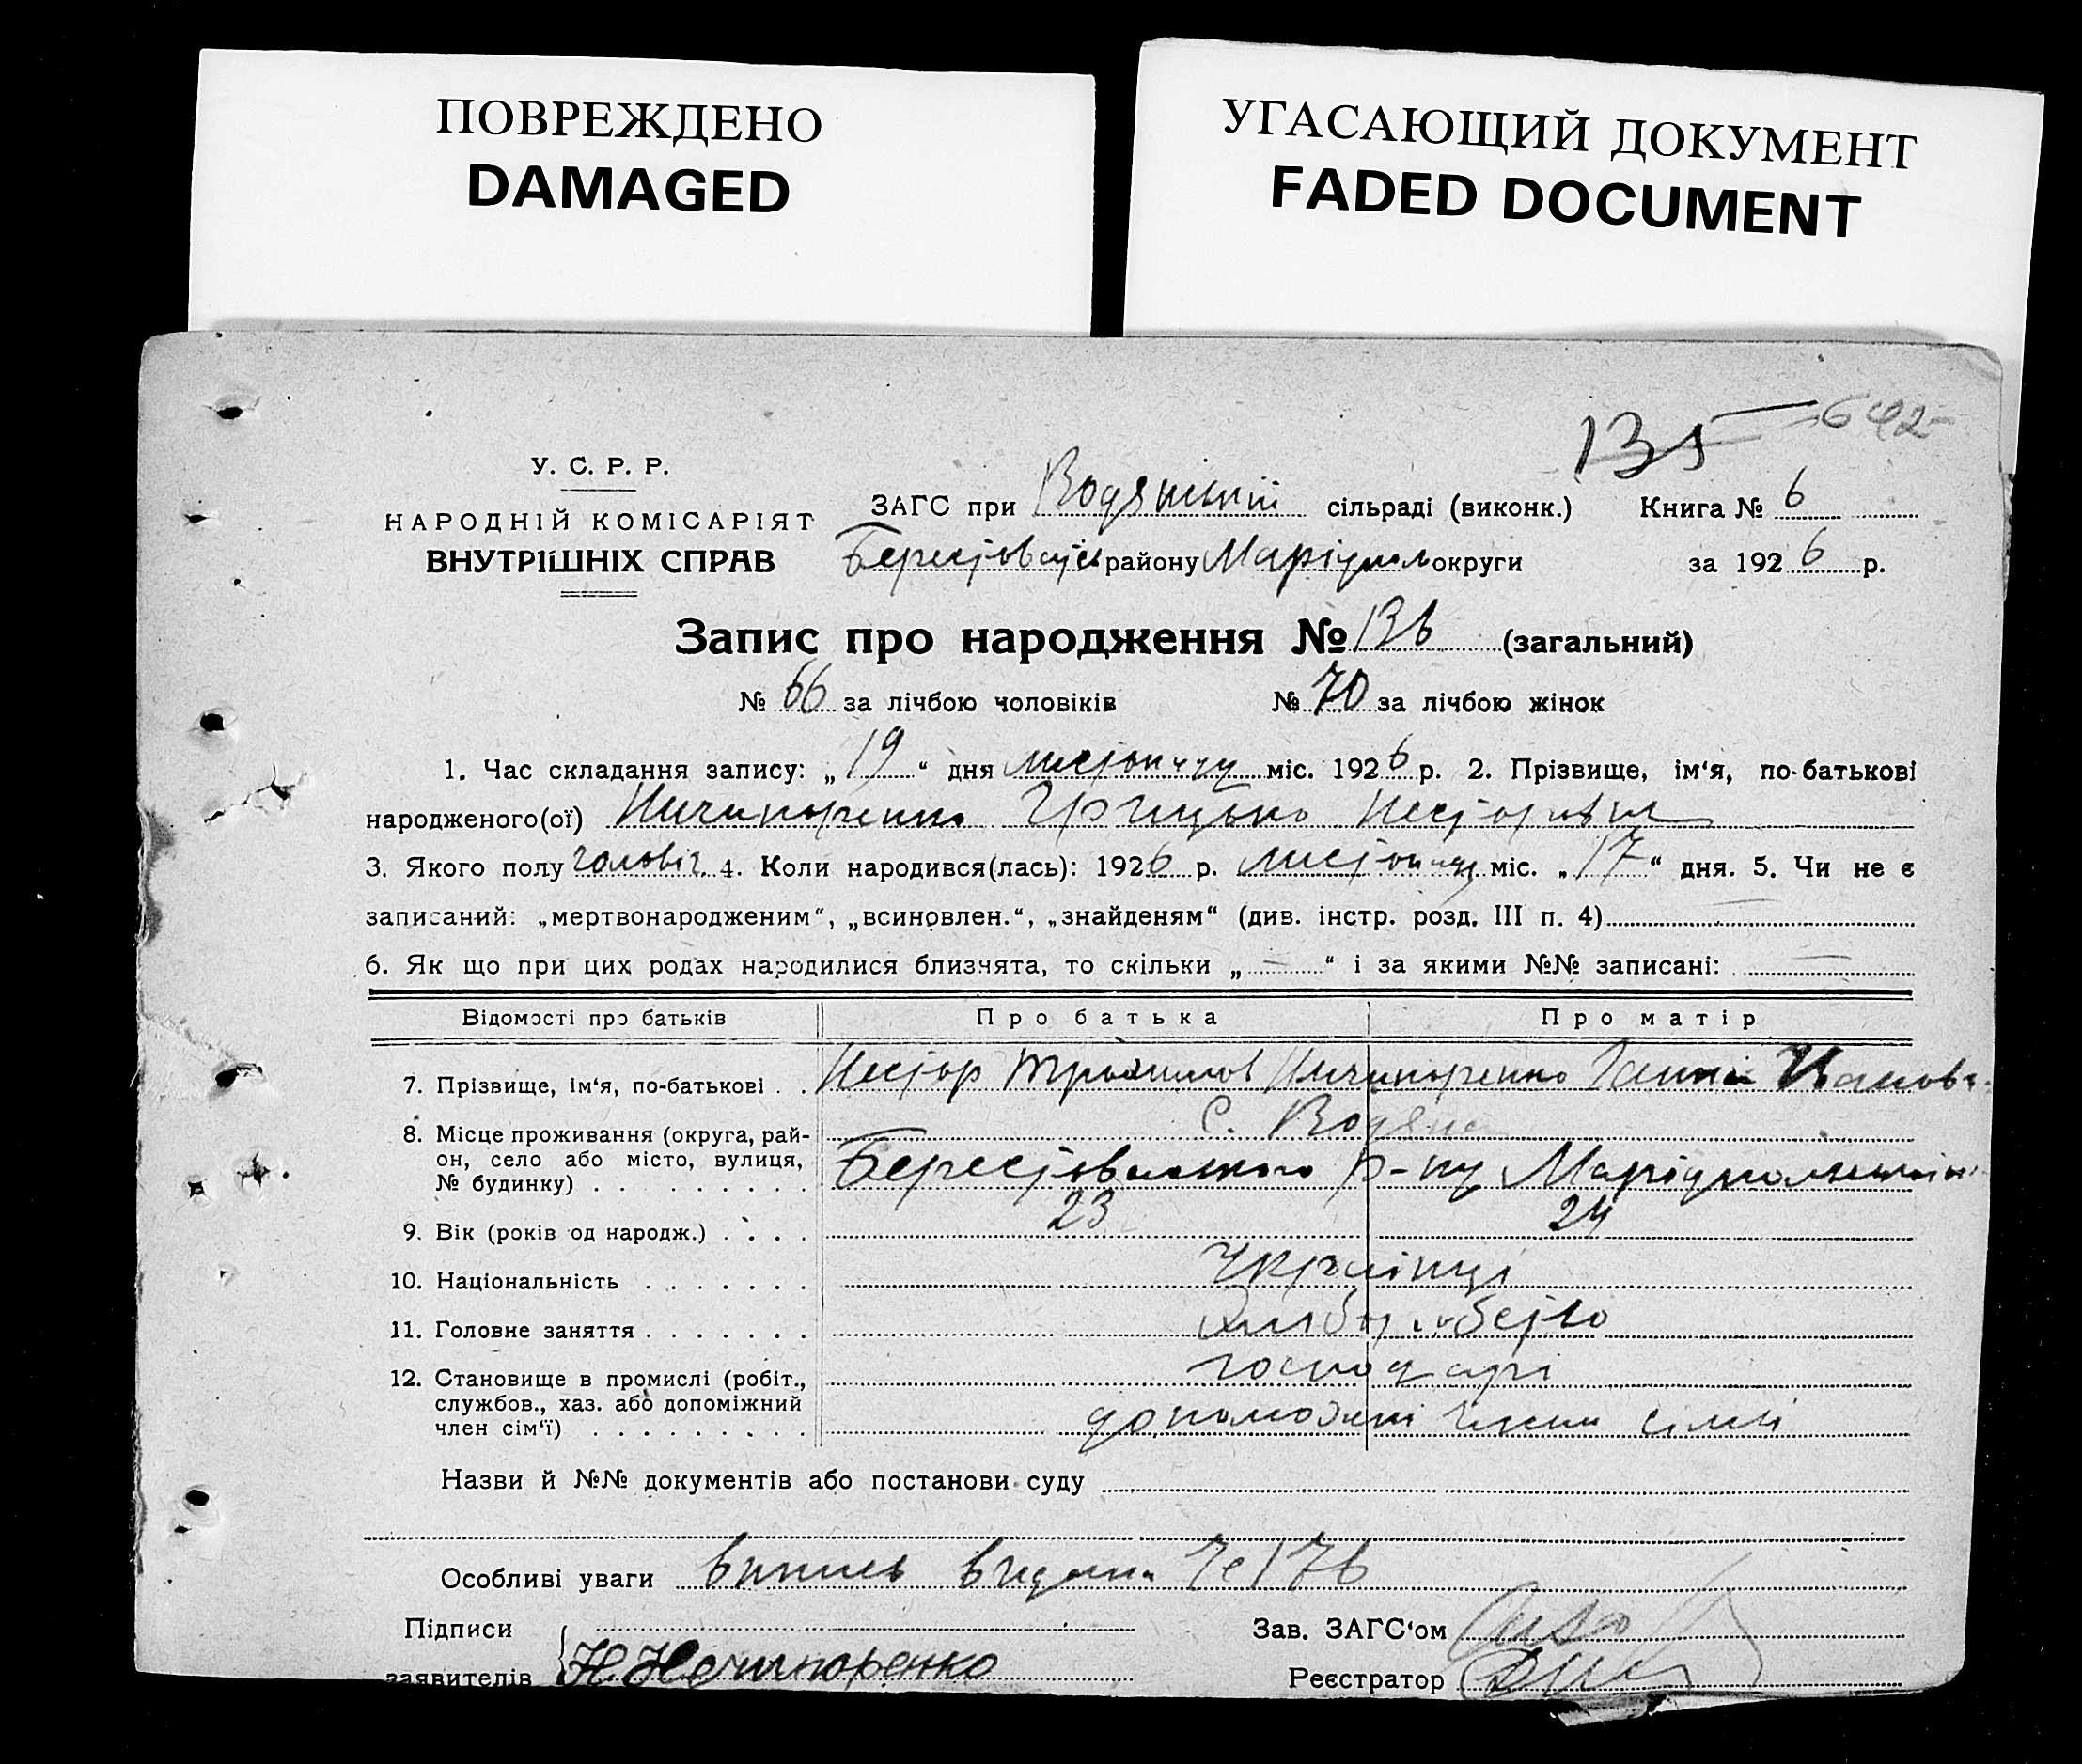 ПОВРЕЖДЕНО
DAMAGED
УГАСАЮЩИЙ ДОКУМЕНТ
FADED DOCUMENT
135 642
У. С. Р. Р.
НАРОДНІЙ КОМІСАРІЯТ
ВНУТРІШНІХ СПРАВ
ЗАГС при Водянській сільраді (виконк.) Книга № 6
району Маріупол округи за 1926 р.
Запис про народження № 136 (загальний)
№ 66 за лічбою чоловіків № 70 за лічбою жінок
1. Час складання запису: „19“ дня листопаду міс. 1926 р. 2. Прізвище, ім‘я, по-батькові
народженого(ої) Ничипоренко Грицько Несторович
3. Якого полу чоловіч. 4. Коли народився(лась): 1926 р. листопаду міс. „17“ дня. 5. Чи не є
записаний: „мертвонародженим“, „всиновлен.“, „знайденям“ (див. інстр. розд. III п. 4)
6. Як що при цих родах народилися близнята, то скільки „ — “ і за якими №№ записані: —
Відомості про батьків Про батька Про матір
7. Прізвище, ім‘я, по-батькові . . Нестор Трохимов Ничипоренко Ганна Іванов
8. Місце проживання (округа, рай- С. Водяна
он, село або місто, вулиця,
№ будинку) . . . . . . . . . р-ну
9. Вік (років од народж.) . . . . 23 24
10. Національність . . . . . . . Українці
11. Головне заняття . . . . . . . хліборобство
12. Становище в промислі (робіт., господарі
службов., хаз. або допоміжний
член сім‘ї) . . . . . . . . . допоможні члени сімї
Назви й №№ документів або постанови суду
Особливі уваги випись видана № 176
Підписи Зав. ЗАГС‘ом
заявителів Н. Ничипоренко Реєстратор